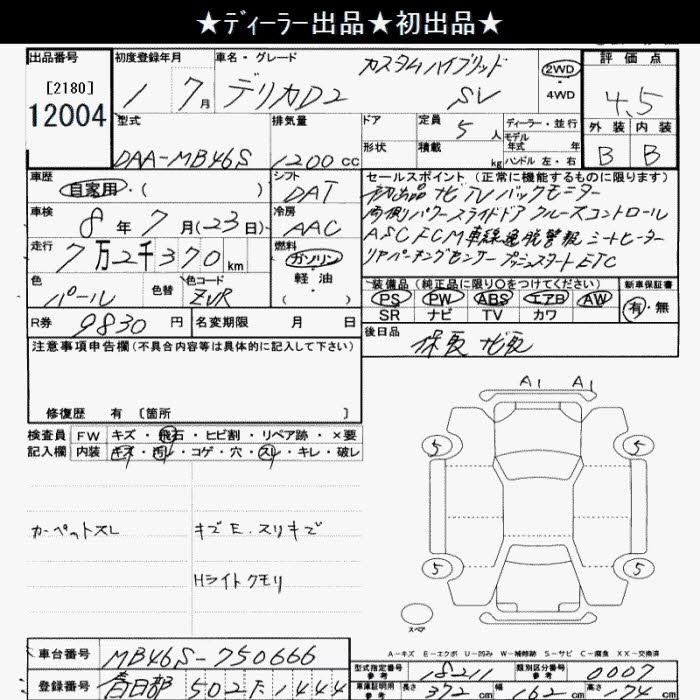 ★ディーラー出品★初出品★
出品番号 初度登録年月 車名・グレード 評価点
[2180] カスタムハイブリッド 2WD
12004 1 7月 デリカD2 SV 4WD 4.5
型式 排気量 ドア 定員 5人 ディーラー・並行 外装 内装
モデル年式 年
DAA-MB46S 1200cc 形状 積載 kg ハンドル 左・右 B B
車歴 シフト セールスポイント (正常に機能するものに限ります)
自家用・( ) DAT 初出品 ナビ TV バックモニター
車検 冷房 両側パワースライドドア クルーズコントロール
8年7月(23日) AAC ASC FCM 車線逸脱警報 シートヒーター
走行 燃料 リヤパーキングセンサー プッシュスタート ETC
7万2千370km ガソリン
色 色替 色コード 軽油 装備品 (純正品に限り○をつけてください) 新車保証書
パール ZVR ( ) PS PW ABS エアB AW 有・無
SR ナビ TV カワ
R券 9830円 名変期限 月 日 後日品
保取 ナビ取
注意事項申告欄 (不具合内容等は具体的に記入して下さい)
修復歴 有 〔箇所 〕
A1 A1
検査員 FW キズ・飛石・ヒビ割・リペア跡・×要
記入欄 内装 キズ・汚レ・コゲ・穴・スレ・キレ・破レ
5 5
カーペットスレ キズE.スリキズ
Hライトクモリ
5 5
スペア
A-キズ E-エクボ U-凹み W-補修跡 S-サビ C-腐食 XX-交換済
車台番号 MB46S-750666 型式指定番号 参考 18211 類別区分番号 参考 0007
登録番号 春日部 502 た 1444 車庫証明用 参考 長さ 372cm 幅 162cm 高さ 174cm